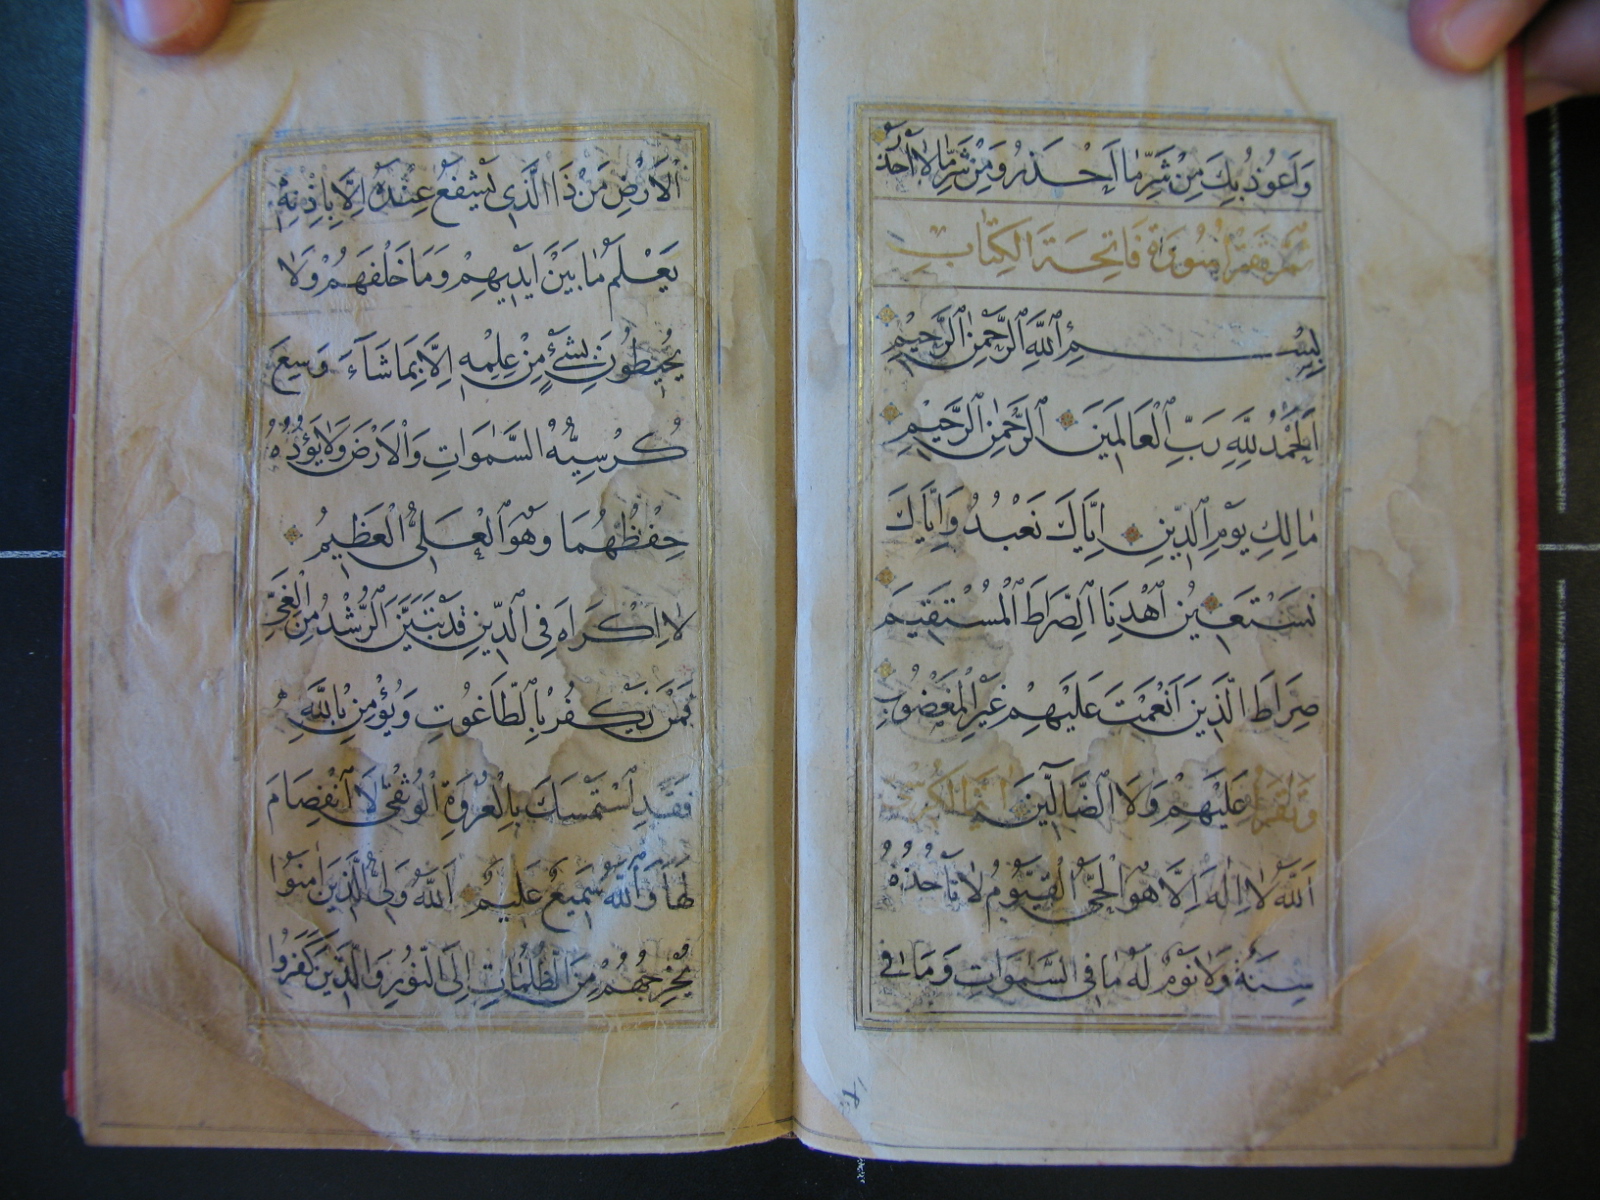 وَاَعُوذُ بِكَ مِنْ شَرِّ مٰا اَحْذَرُ وَمِنْ شَرِّ مٰا لاٰ اَحْذَرُ
ثُمَّ يَقْرَءُ سُورَةَ فَاتِحَةَ الْكِتٰابِ
بِسْمِ ٱللّٰهِ ٱلرَّحْمٰنِ ٱلرَّحِيْمِ
اَلْحَمْدُ لِلّٰهِ رَبِّ ٱلْعَالَمِيَنَ ٱلرَّحْمٰنِ ٱلرَّحِيْمِ
مٰالِكِ يَوْمِ ٱلدِّينِ اِيَّاكَ نَعْبُدُ وَاِيَّاكَ
نَسْتَعِيْنُ اَهْدِنَا ٱلصِّرَاطَ ٱلْمُسْتَقِيَم
صِرَاطَ الَّذِينَ اَنْعَمْتَ عَلَيْهِمْ غَيْرِ ٱلْمَغْضُوبِ
عَلَيْهِمْ وَلَا ٱلضَّآلِّينَ
اَللّٰهُ لاٰ اِلٰهَ اِلَّا هُوَ ٱلْحَيُّ ٱلْقَيُّومُ لاٰ تَأْخُذُهُ
سِنَةٌ وَلاٰ نَوْمٌ لَهُ مٰا فِي السَّمٰوَاتِ وَمَا فِي
اْلاَرْضِ مَنْ ذَا الَّذِي يَشْفَعُ عِنْدَهُ اِلَّا بِاِذْنِهِ
يَعْلَمُ مٰا بَيْنَ اَيْدِيهِمْ وَمَا خَلْفَهُمْ وَلاٰ
يُحِيطُونَ بِشَيْءٍ مِنْ عِلْمِهِ اِلَّا بِمَا شَآءَ وَسِعَ
كُرْسِيُّهُ السَّمٰوَاتِ وَالْاَرْضَ وَلاٰ يَؤُدُهُ
حِفْظُهُمَا وَهُوَ ٱلْعَلِىُّ الْعَظِيْمُ
لاٰ اِكْرَاهَ فِي ٱلدِّيْنِ قَدْ تَبَيَّنَ ٱلرُّشْدُ مِنَ الْغَيِّ
فَمَنْ يَكْفُرْ بِالطَّاغُوتِ وَيُؤْمِنْ بِاللّٰهِ
فَقَدِ اسْتَمْسَكَ بِالْعُرْوَةِ الْوُثْقٰى لَا ٱنْفِصَامَ
لَهَا وَٱللّٰهُ سَمِيْعٌ عَلِيْمٌ اَللّٰهُ وَلِىُّ الَّذِينَ اٰمَنُوا
يُخْرِجُهُمْ مِنَ ٱلظُّلُمَاتِ اِلَى النُّورِ وَالَّذِينَ كَفَرُوا